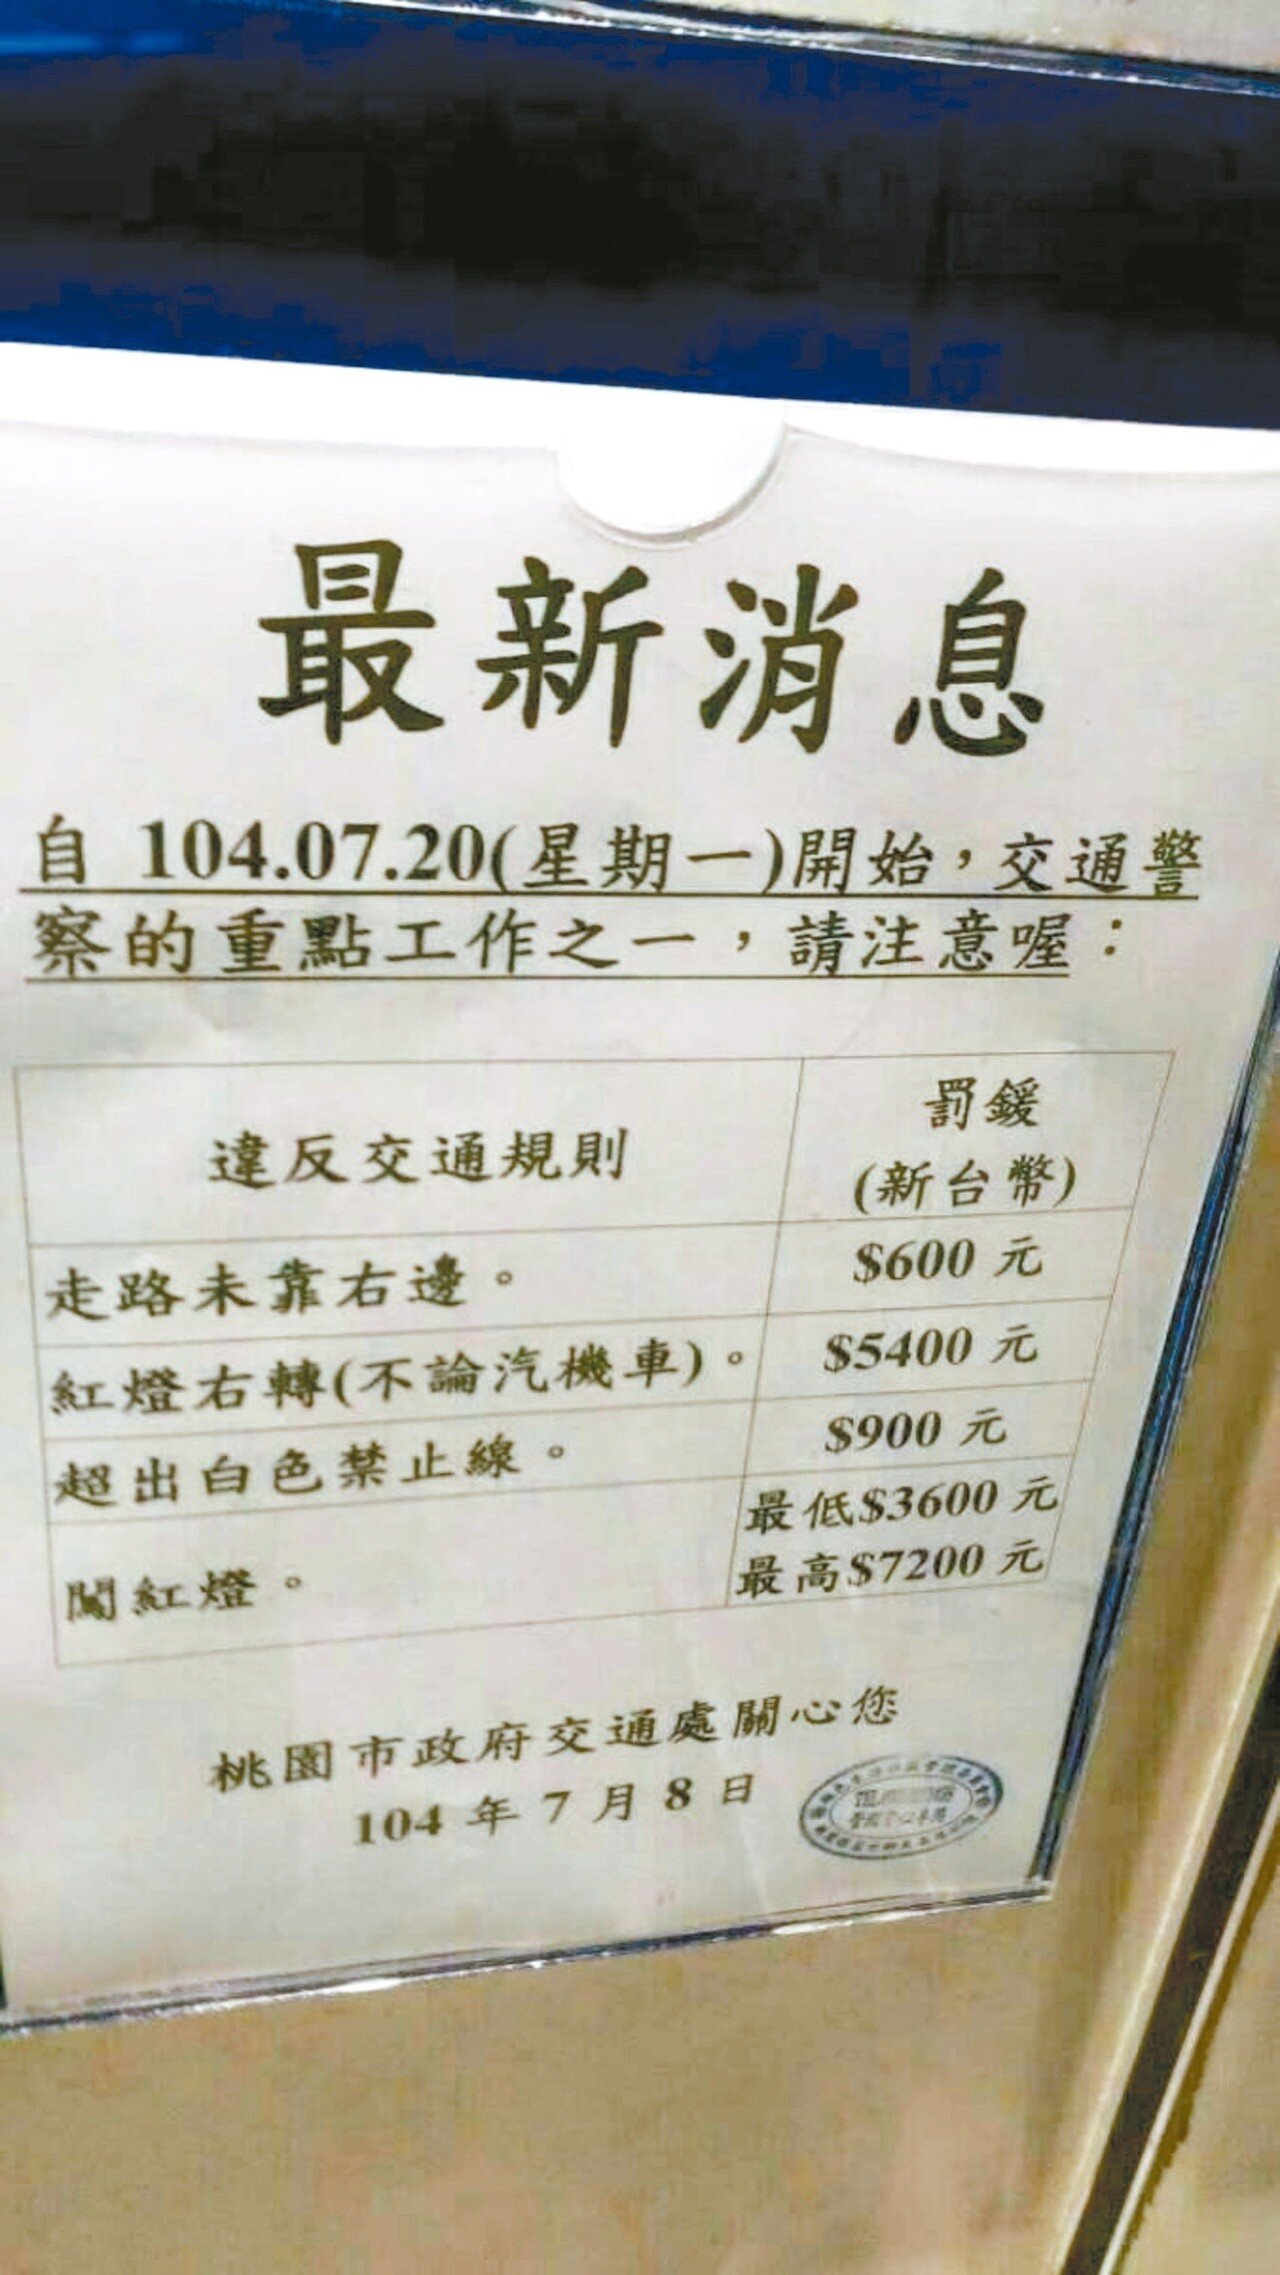 最新消息
自 104.07.20(星期一)開始，交通警
察的重點工作之一，請注意喔：
違反交通規則
罰鍰
(新台幣)
走路未靠右邊。
$600 元
紅燈右轉(不論汽機車)。
$5400 元
超出白色禁止線。
$900 元
闖紅燈。
最低$3600 元
最高$7200 元
桃園市政府交通處關心您
104 年 7 月 8 日